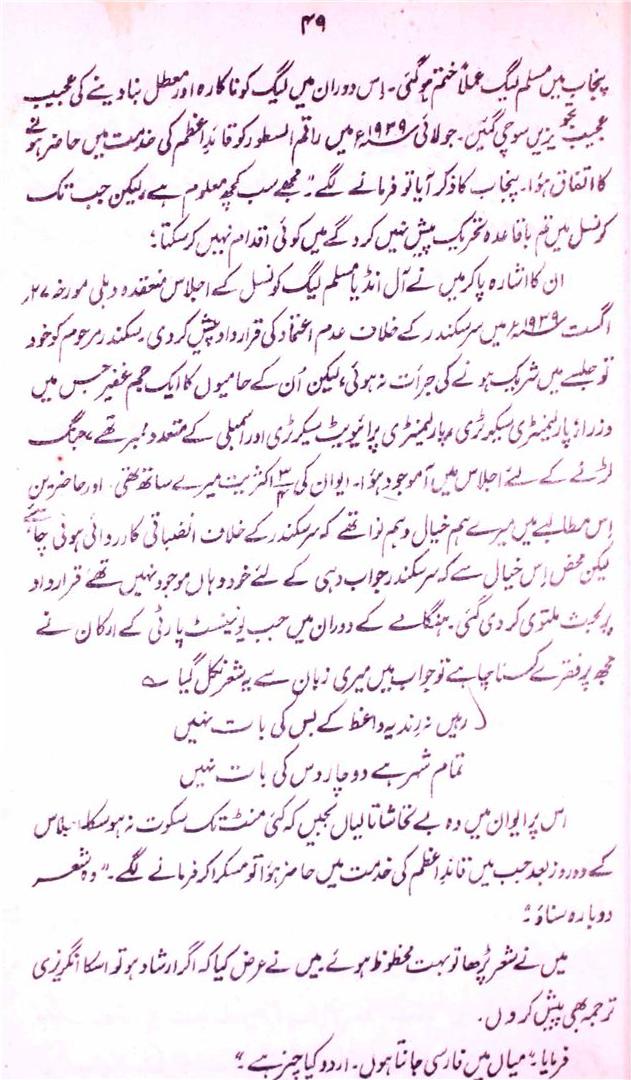 ۴۹
پنجاب میں مسلم لیگ عملاً ختم ہو گئی۔ اِس دوران میں لیگ کو ناکارہ اور معطل بنا دینے کی عجیب
عجیب تجویزیں سوچی گئیں۔ جولائی ۱۹۳۹ء میں راقم السطور کو قائدِ اعظم کی خدمت میں حاضر ہونے
کا اتفاق ہؤا۔ پنجاب کا ذکر آیا تو فرمانے لگے۔ "مجھے سب کچھ معلوم ہے، لیکن جب تک
کونسل میں تم باقاعدہ تحریک پیش نہیں کرو گے میں کوئی اقدام نہیں کر سکتا؛
ان کا اشارہ پا کر میں نے آل انڈیا مسلم لیگ کونسل کے اجلاس منعقدہ دہلی مورخہ ۲۷؍
اگست ۱۹۳۹ء میں سر سکندر کے خلاف عدم اعتماد کی قرارداد پیش کر دی۔ سکندر مرحوم کو خود
تو جلسے میں شریک ہونے کی جرأت نہ ہوئی، لیکن اُن کے حامیوں کا ایک جم غفیر جس میں
وزراء پارلیمنٹری سیکرٹری، پارلیمنٹری پرائیویٹ سیکرٹری اور اسمبلی کے متعدد ممبر تھے، جنگ
لڑنے کے لئے اجلاس میں آموجود ہؤا۔ ایوان کی ۳/۴ اکثریت میرے ساتھ تھی۔ اور حاضرین
اِس مطالبے میں میرے ہم خیال و ہم نوا تھے کہ سر سکندر کے خلاف انضباتی کارروائی ہونی چاہئے
لیکن محض اِس خیال سے کہ سر سکندر جواب دہی کے لئے خود وہاں موجود نہیں تھے قرارداد
پر بحث ملتوی کر دی گئی۔ ہنگامے کے دوران میں جب یونینسٹ پارٹی کے ارکان نے
مجھ پر فقرے کسنا چاہے تو جواب میں میری زبان سے یہ شعر نکل گیا ؎
رہیں نہ رند یہ واعظ کے بس کی بات نہیں
تمام شہر ہے دو چار دس کی بات نہیں
اس پر ایوان میں وہ بے تحاشا تالیاں بجیں کہ کئی منٹ تک سکوت نہ ہو سکا۔ اجلاس
کے دو روز بعد جب میں قائدِ اعظم کی خدمت میں حاضر ہؤا تو مسکرا کر فرمانے لگے۔ "وہ شعر
دوبارہ سناؤ"
میں نے شعر پڑھا تو بہت محظوظ ہوئے۔ میں نے عرض کیا کہ اگر ارشاد ہو تو اسکا انگریزی
ترجمہ بھی پیش کروں۔
فرمایا۔ "میاں میں فارسی جانتا ہوں۔ اردو کیا چیز ہے۔"